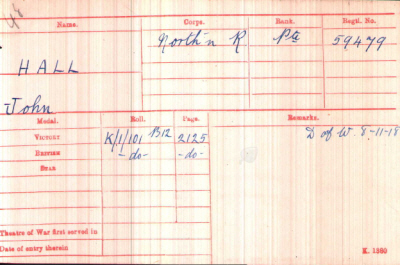 Name. Corps. Rank. Regtl. No.
North'n R Pte 59479
HALL
John
Medal. Roll. Page. Remarks.
VICTORY K/1/101 B12 2125 D of W. 8-11-18
BRITISH -do- -do-
STAR
Theatre of War first served in
Date of entry therein K. 1380